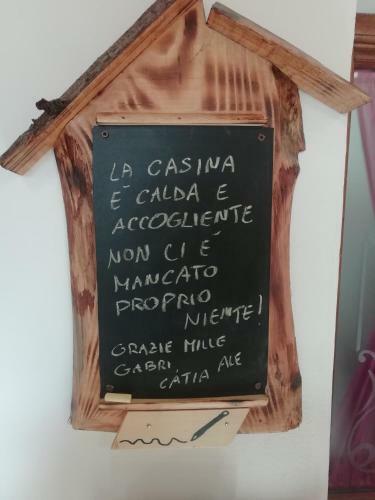 LA CASINA
È CALDA E
ACCOGLIENTE
NON CI È
MANCATO
PROPRIO
NIENTE!
GRAZIE MILLE
GABRI,
CATIA ALE